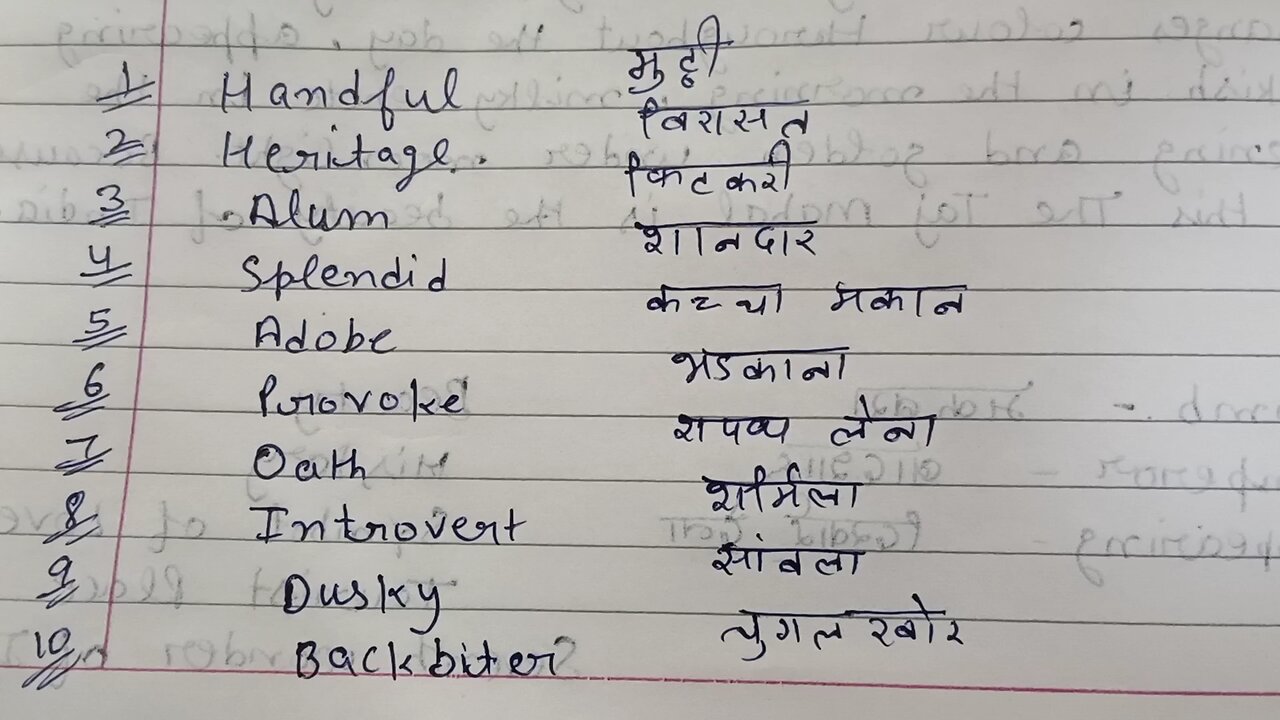 1. Handful मुट्ठी
2 Heritage. विरासत
3 Alum फिटकरी
4 Splendid शानदार
5 Adobe कच्चा मकान
6 Provoke भडकाना
7 Oath शपथ लेना
8 Introvert शर्मिला
9 Dusky सांवला
10 Backbiter चुगलखोर